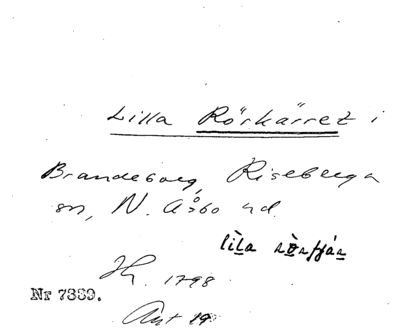 Lilla Rörkärret i
Brandeborg, Riseberga
sn, N. Åsbo hd.
lìla
Jk. 1798
Nr 7889.
Akt 29